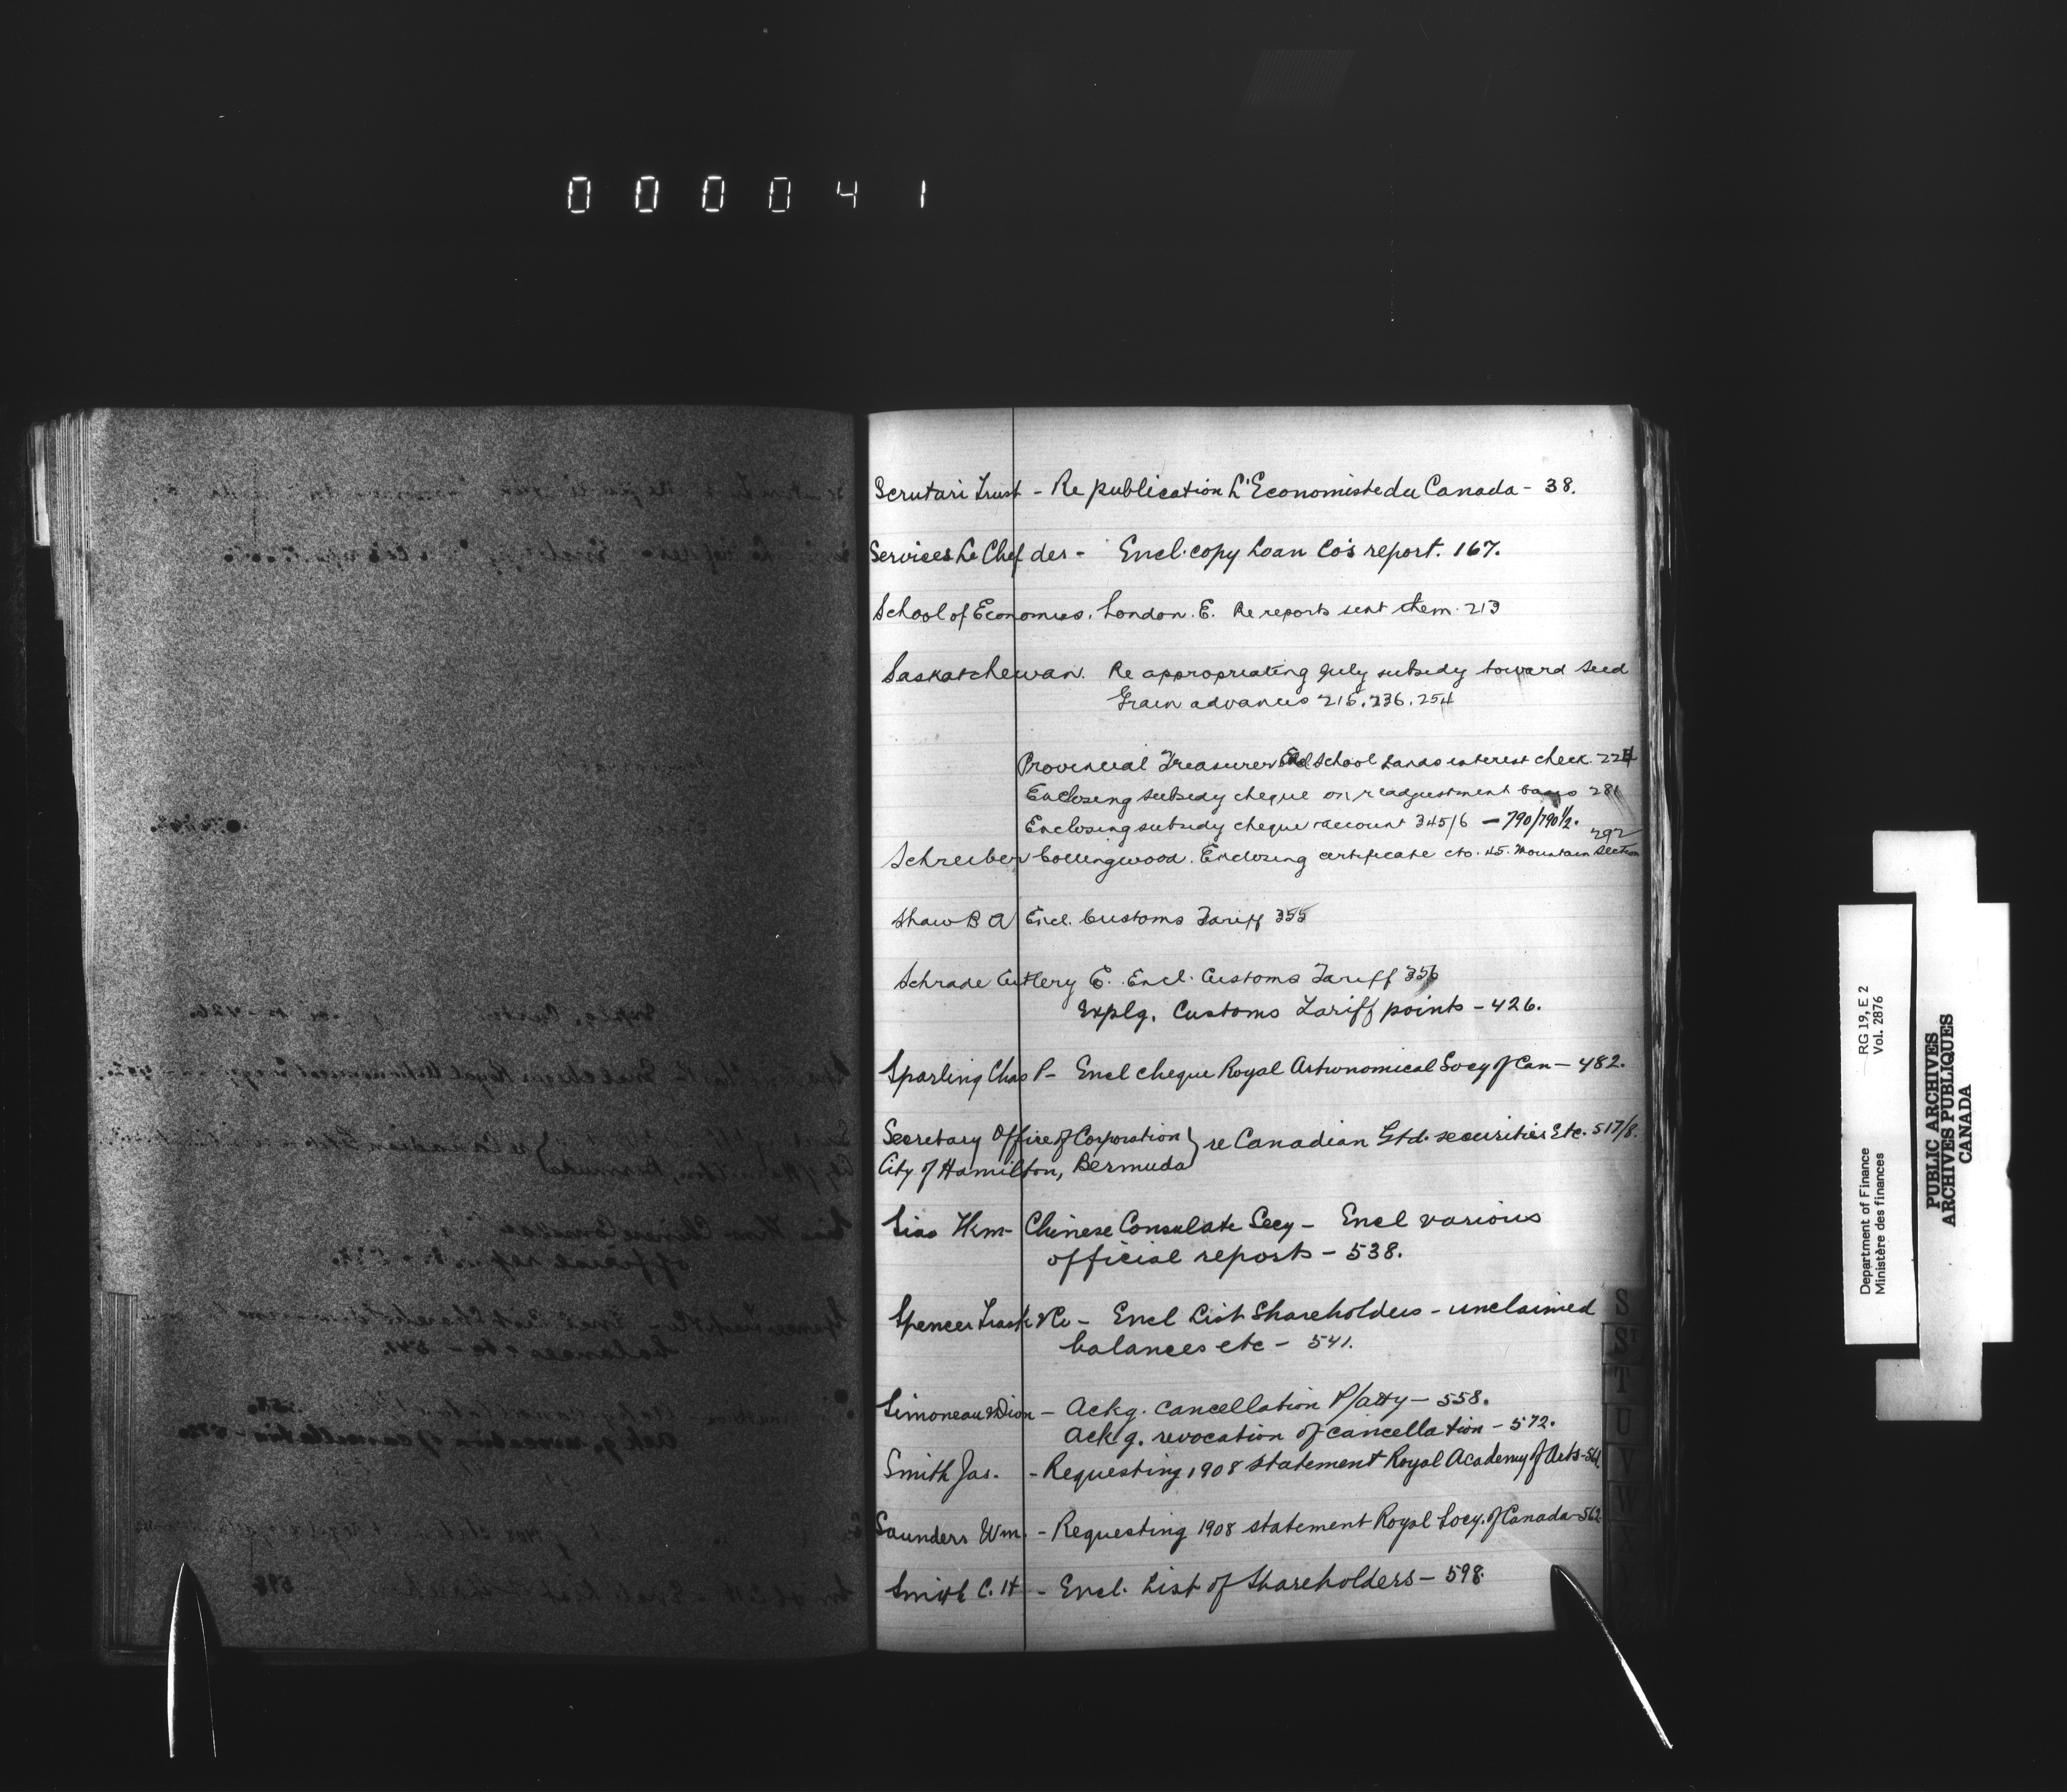 000041
Scrutari Trust - Re publication L'Economiste du Canada - 38.
Services Le Chef des - Encl. copy Loan Co's report. 167.
School of Economics. London. E. Re reports sent them. 213
Saskatchewan. Re appropriating July subsidy toward Seed
Grain advances 215. 236. 254
Provincial Treasurer Encl School Lands interest check. 224
Enclosing subsidy cheque on readjustment basis 281
Enclosing subsidy cheque account 345/6 - 790/790½.
292
Schreiber Collingwood. Enclosing certificate cto. 45. Mountain Section
Shaw B A Encl. Customs Tariff 355
Schrade Cutlery C. Encl. Customs Tariff 356
Explg. Customs Tariff points - 426.
Sparling Chas P - Encl cheque Royal Astronomical Socy of Can - 482.
Secretary Office of Corporation } re Canadian Gtd. securities Etc. 517/8.
City of Hamilton, Bermuda
Siao Hkm - Chinese Consulate Secy - Encl various
official reports - 538.
Spencer Trask & Co - Encl List Shareholders - unclaimed
balances etc - 541.
Simoneau & Dion - Ackg. cancellation P/atty - 558.
Ackg. revocation of cancellation - 572.
Smith Jas. - Requesting 1908 statement Royal Academy of Arts - 561.
Saunders Wm. - Requesting 1908 statement Royal Socy. of Canada - 562
Smith C. H - Encl. List of Shareholders - 598.
S
ST
T
U
V
W
Department of Finance RG 19, E 2
Ministère des finances Vol. 2876
PUBLIC ARCHIVES
ARCHIVES PUBLIQUES
CANADA